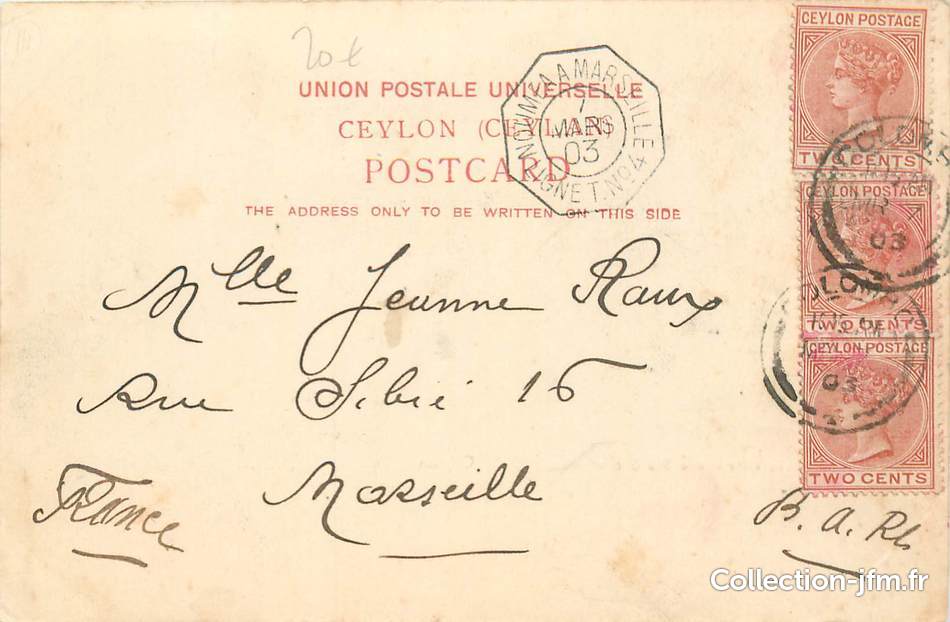 20€
UNION POSTALE UNIVERSELLE
CEYLON (CEYLAN)
POSTCARD
THE ADDRESS ONLY TO BE WRITTEN ON THIS SIDE
NOUMEA A MARSEILLE
7
MARS
03
LIGNE T. No 4
CEYLON POSTAGE
TWO CENTS
CEYLON POSTAGE
TWO CENTS
CEYLON POSTAGE
TWO CENTS
COLOMBO
03
COLOMBO
03
Mlle Jeanne Raux
Rue Sibié 16
Marseille
France
B. a. Rh.
Collection-jfm.fr